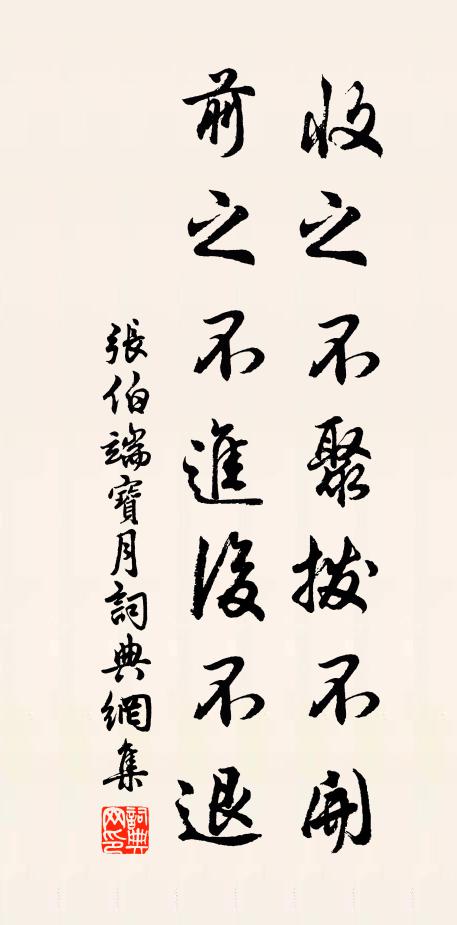 收之不聚撥不開
前之不進後不退
張伯端寶月詞典網集
詞典網印